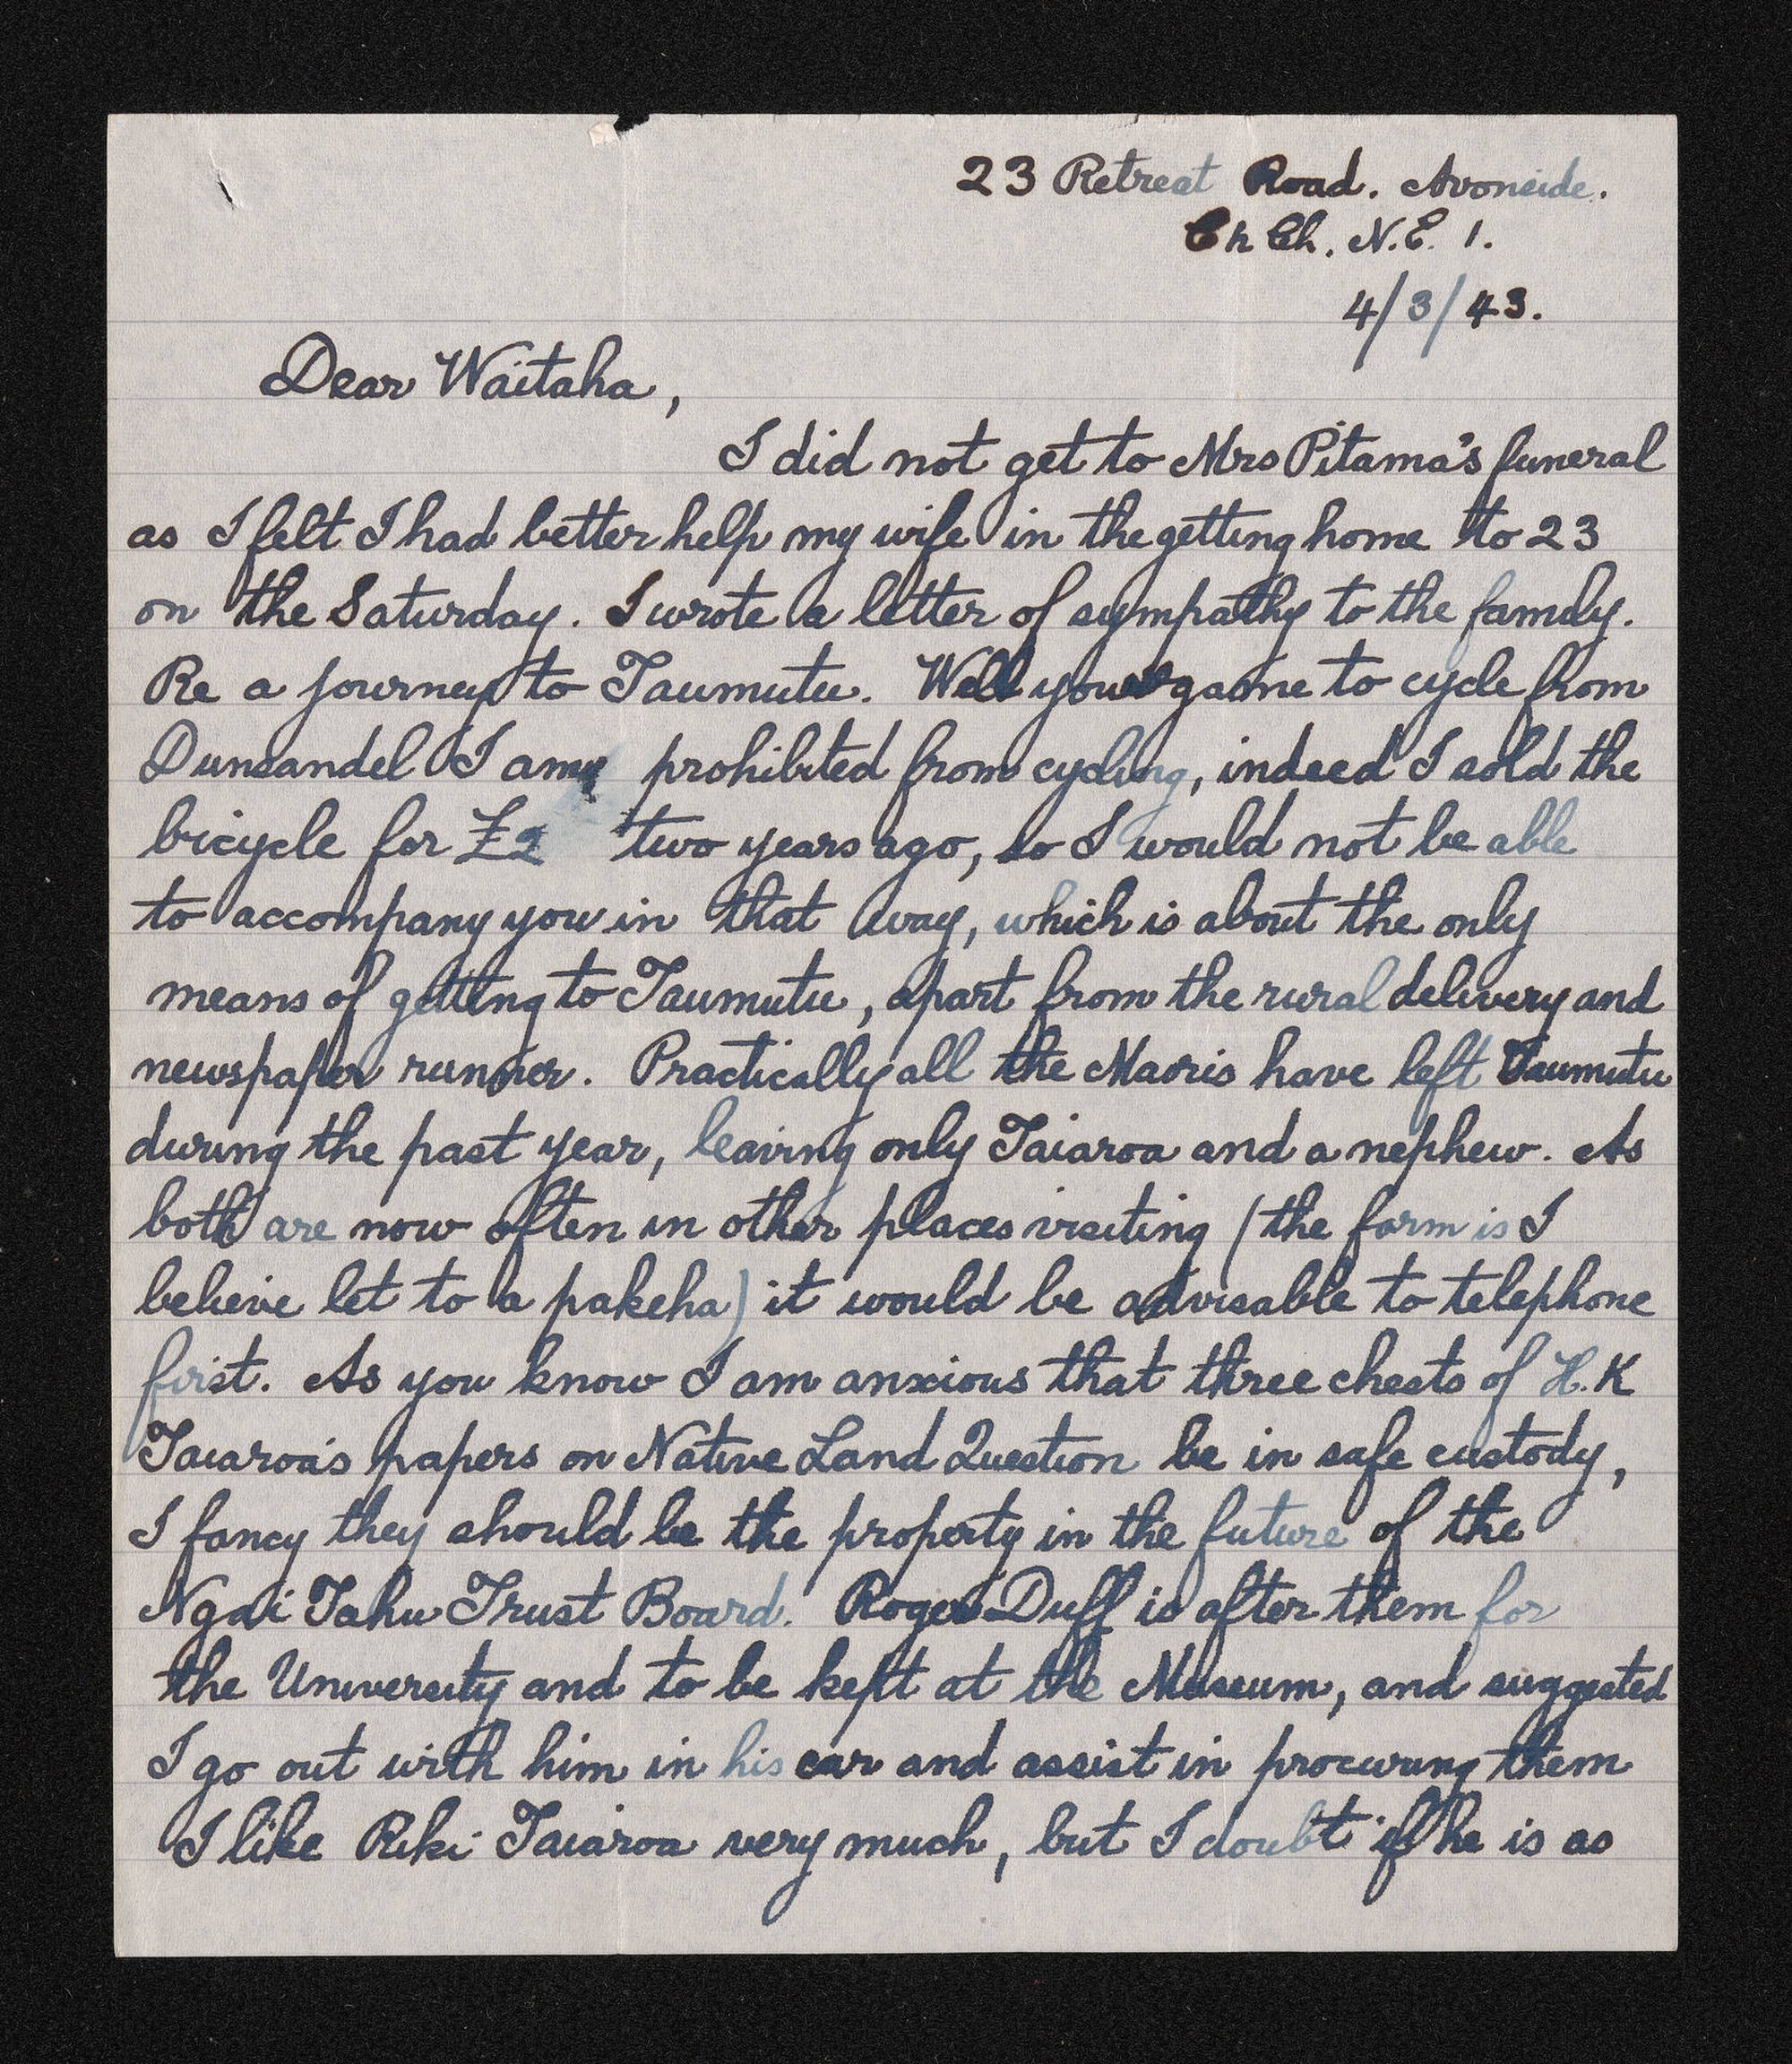 23 Retreat Road. Avonside.
Ch Ch. N.E. 1.
4/3/43.
Dear Waitaha,
I did not get to Mrs Pitama's funeral
as I felt I had better help my wife in the getting home to 23
on the Saturday. I wrote a letter of sympathy to the family.
Re a journey to Taumutu. Well your game to cycle from
Dunsandel I am prohibited from cycling, indeed I sold the
bicycle for £2 two years ago, so I would not be able
to accompany you in that way, which is about the only
means of getting to Taumutu, apart from the rural delivery and
newspaper runner. Practically all the Maoris have left Taumutu
during the past year, leaving only Taiaroa and a nephew. As
both are now often in other places visiting (the farm is I
believe let to a pakeha) it would be advisable to telephone
first. As you know I am anxious that three chests of H.K
Taiaroa's papers on Native Land Question be in safe custody,
I fancy they should be the property in the future of the
Ngai Tahu Trust Board. Roger Duff is after them for
the University and to be kept at the Museum, and suggested
I go out with him in his car and assist in procuring them
I like Riki Taiaroa very much, but I doubt if he is as